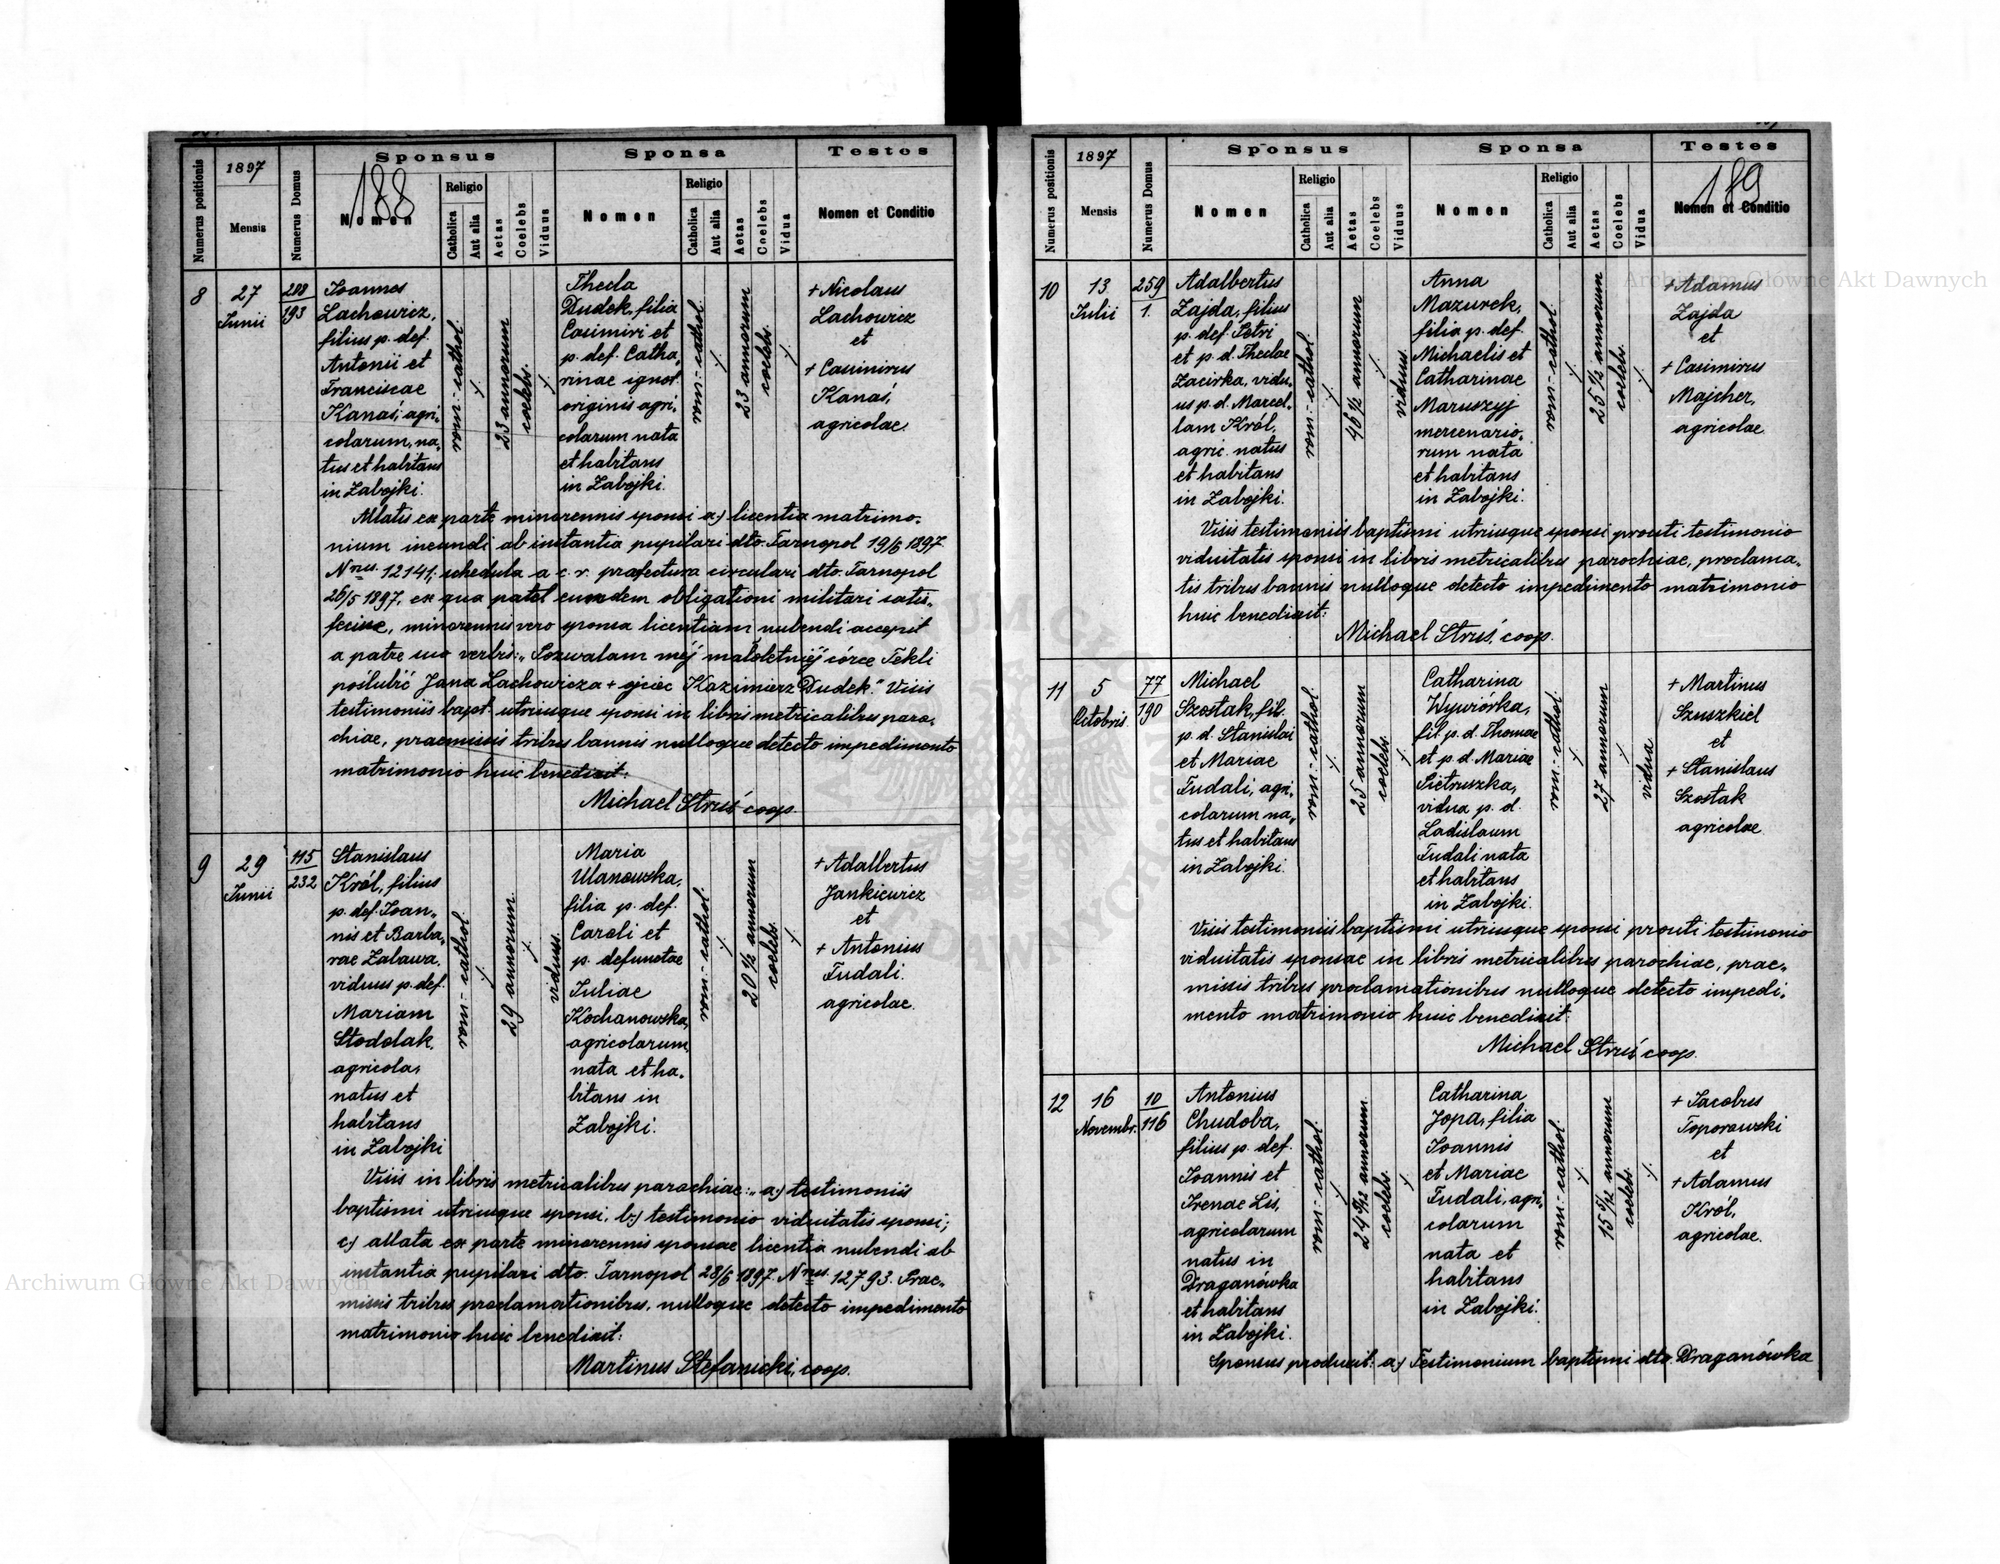 188
Numerus positionis
1897
Mensis
Numerus Domus
Sponsus
Nomen
Religio
Catholica
Aut alia
Aetas
Coelebs
Vidus
Sponsa
Nomen
Religio
Catholica
Aut alia
Aetas
Coelebs
Vidua
Testes
Nomen et Conditio
8
27
Junii
193
Joannes
Lachowicz,
filius p. def.
Antonii et
Franciscae
Kanaś, agri-
colarum, na-
tus et habitans
in Zabojki.
rom:-cathol.
23 annorum
coelebs.
Thecla
Dudek, filia
Casimiri et
p. def. Catha-
rinae ignot.
originis agri-
colarum nata
et habitans
in Zabojki.
rom:-cathol.
23 annorum
coelebs.
+ Nicolaus
Lachowicz
et
+ Casimirus
Kanaś,
agricolae.
Allatis ex parte minorennis sponsi a.) licentia matrimo-
nium ineundi ab instantia pupilari dto. Tarnopol 19/6 1897
Nrus. 12141; schedula a c. r. prafectura circulari dto. Tarnopol
26/5 1897, ex qua patet eumdem obligationi militari satis-
fecisse, minorennis vero sponsa licentiam nubendi accepit
a patre suo verbis: „Pozwalam méj małoletniéj córce Tekli
poślubić Jana Lachowicza + ojciec Kazimierz Dudek." Visis
testimoniis bapt. utriusque sponsi in libris metricalibus paro-
chiae, praemissis tribus bannis nulloque detecto impedimento
matrimonio huic benedixit:
Michael Struś coop.
9
29
Junii
115
232
Stanislaus
Król, filius
p. def. Joan-
nis et Barba-
rae Zalawa,
viduus p. def.
Mariam
Stodolak,
agricola,
natus et
habitans
in Zabojki
rom:-cathol.
29 annorum
viduus.
Maria
Ulanowska,
filia p. def.
Caroli et
p. defunctae
Juliae
Kochanowska,
agricolarum,
nata et ha-
bitans in
Zabojki.
rom:-cathol.
20 1/2 annorum
coelebs.
+ Adalbertus
Jankiewicz
et
+ Antonius
Fudali.
agricolae.
Visis in libris metricalibus parochiae: „a.) testimoniis
baptismi utriusque sponsi, b.) testimonio viduitatis sponsi;
c.) allata ex parte minorennis sponsae licentia nubendi ab
instantia pupilari dto. Tarnopol 28/6 1897 Nrus. 12793. Prae-
missis tribus proclamationibus, nulloque detecto impedimento
matrimonio huic benedixit:
Martinus Stefanicki, coop.
189
Numerus positionis
1897
Mensis
Numerus Domus
Sponsus
Nomen
Religio
Catholica
Aut alia
Aetas
Coelebs
Vidus
Sponsa
Nomen
Religio
Catholica
Aut alia
Aetas
Coelebs
Vidua
Testes
Nomen et Conditio
10
13
Julii
259
1.
Adalbertus
Zajda, filius
p. def. Petri
et p. d. Theclae
Zacirka, vidu-
us p. d. Marcel-
lam Król,
agric. natus
et habitans
in Zabojki.
rom:-cathol.
46 1/2 annorum
viduus.
Anna
Mazurek,
filia p. def.
Michaelis et
Catharinae
Maruszyj
mercenario-
rum nata
et habitans
in Zabojki.
rom:-cathol.
25 1/2 annorum
coelebs.
+ Adamus
Zajda
et
+ Casimirus
Majcher,
agricolae
Visis testimoniis baptismi utriusque sponsi prouti testimonio
viduitatis sponsi in libris metricalibus parochiae, proclama-
tis tribus bannis nulloque detecto impedimento matrimonio
huic benedixit:
Michael Struś, coop.
11
5
Octobris
77
190
Michael
Szostak, fil.
p. d. Stanislai
et Mariae
Fudali, agri-
colarum na-
tus et habitans
in Zabojki.
rom:-cathol.
25 annorum
coelebs.
Catharina
Wywiórka,
fil. p. d. Thomae
et p. d. Mariae
Pietruszka,
vidua p. d.
Ladislaum
Fudali nata
et habitans
in Zabojki.
rom:-cathol.
27 annorum
vidua
+ Martinus
Szuszkiel
et
+ Stanislaus
Szostak
agricolae
Visis testimoniis baptismi utriusque sponsi prouti testimonio
viduitatis sponsae in libris metricalibus parochiae, prae-
missis tribus proclamationibus nulloque detecto impedi-
mento matrimonio huic benedixit:
Michael Struś coop.
12
16
Novembr.
10
116
Antonius
Chudoba,
filius p. def.
Joannis et
Irenae Lis,
agricolarum
natus in
Draganówka
et habitans
in Zabojki.
rom:-cathol.
annorum
coelebs.
Catharina
Jopa, filia
Joannis
et Mariae
Fudali, agri-
colarum
nata et
habitans
in Zabojki.
rom:-cathol.
annorum
coelebs.
+ Jacobus
Toporowski
et
+ Adamus
Król,
agricolae.
Sponsus produxit: a.) Testimonium baptismi dto. Draganówka
Archiwum Główne Akt Dawnych
Archiwum Główne Akt Dawnych